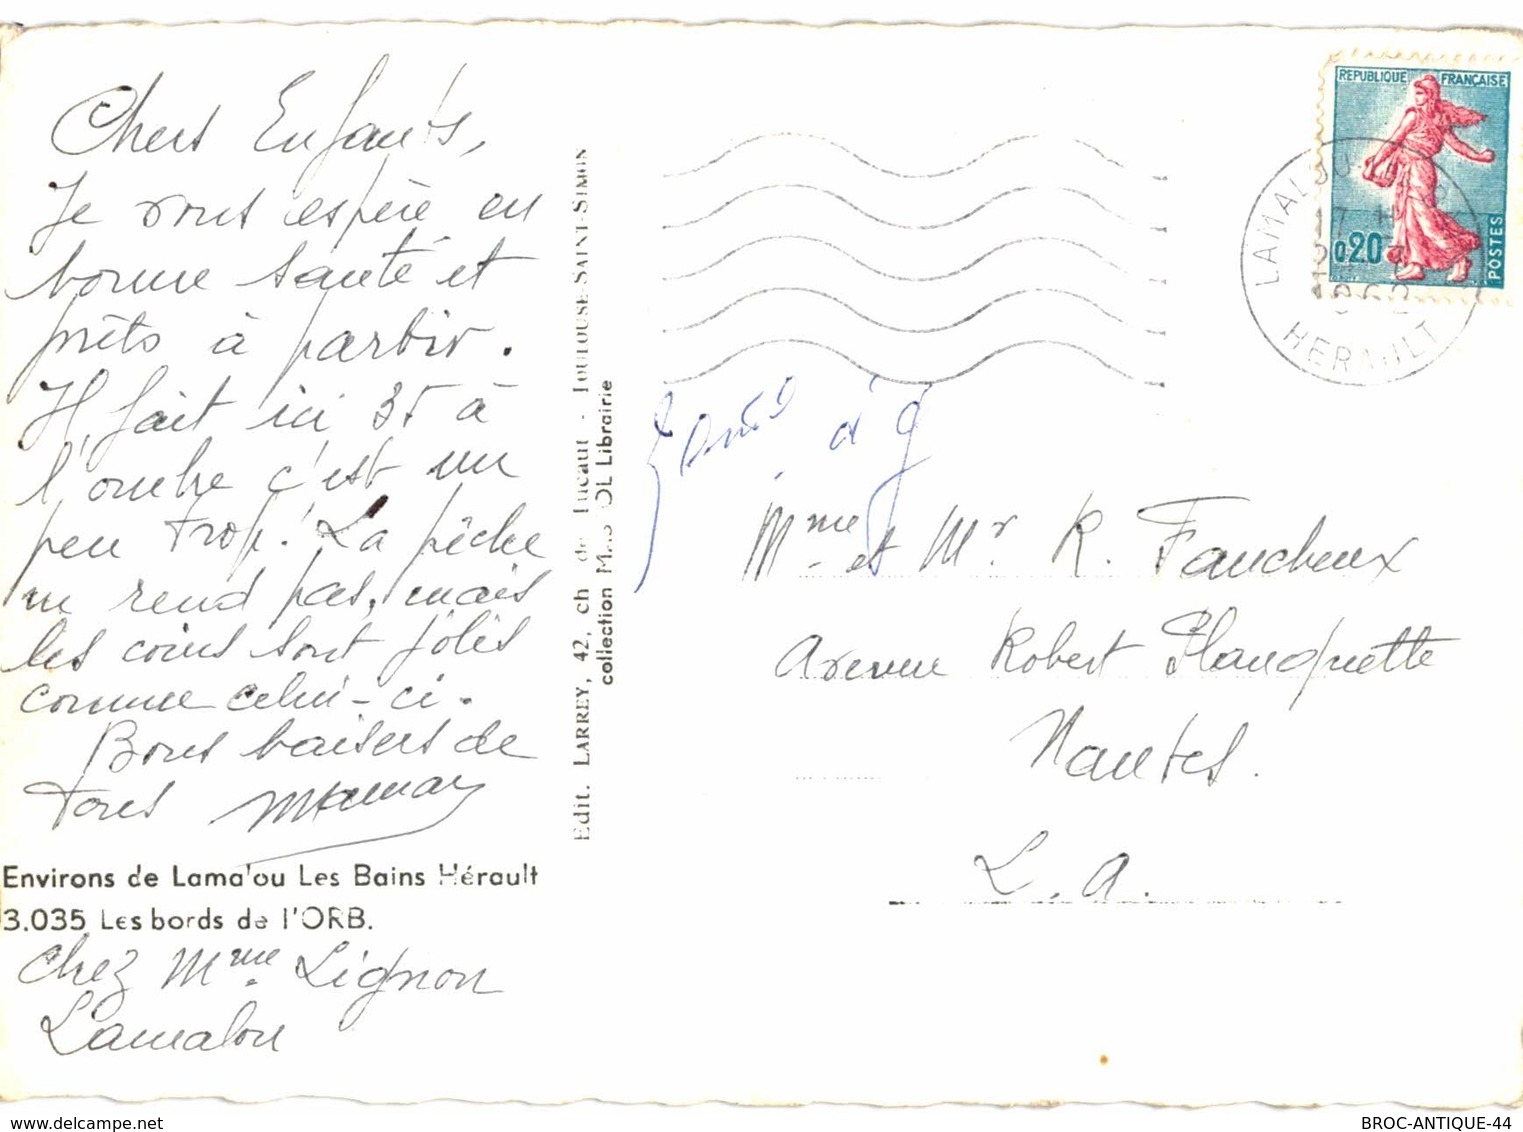 Chers Enfants,
Je vous espère en
bonne santé et
prêts à partir.
Il fait ici 35 à
l'ombre c'est un
peu trop! La pêche
ne rend pas, mais
les coins sont jolis
comme celui-ci.
Bons baisers de
tous Maman
Environs de Lamalou Les Bains Hérault
3.035 Les bords de l'ORB.
Chez Mme Lignon
Lamalou
Edit. LARREY, 42, ch de Tucaut - TOULOUSE-SAINT-SIMON
collection MASSOL Librairie
REPUBLIQUE FRANÇAISE
0,20
POSTES
LAMALOU
17 H
1962
HERAULT
à g
Mme et Mr R. Faucheux
Avenue Robert Planquette
Nantes.
L. A.
BROC-ANTIQUE-44